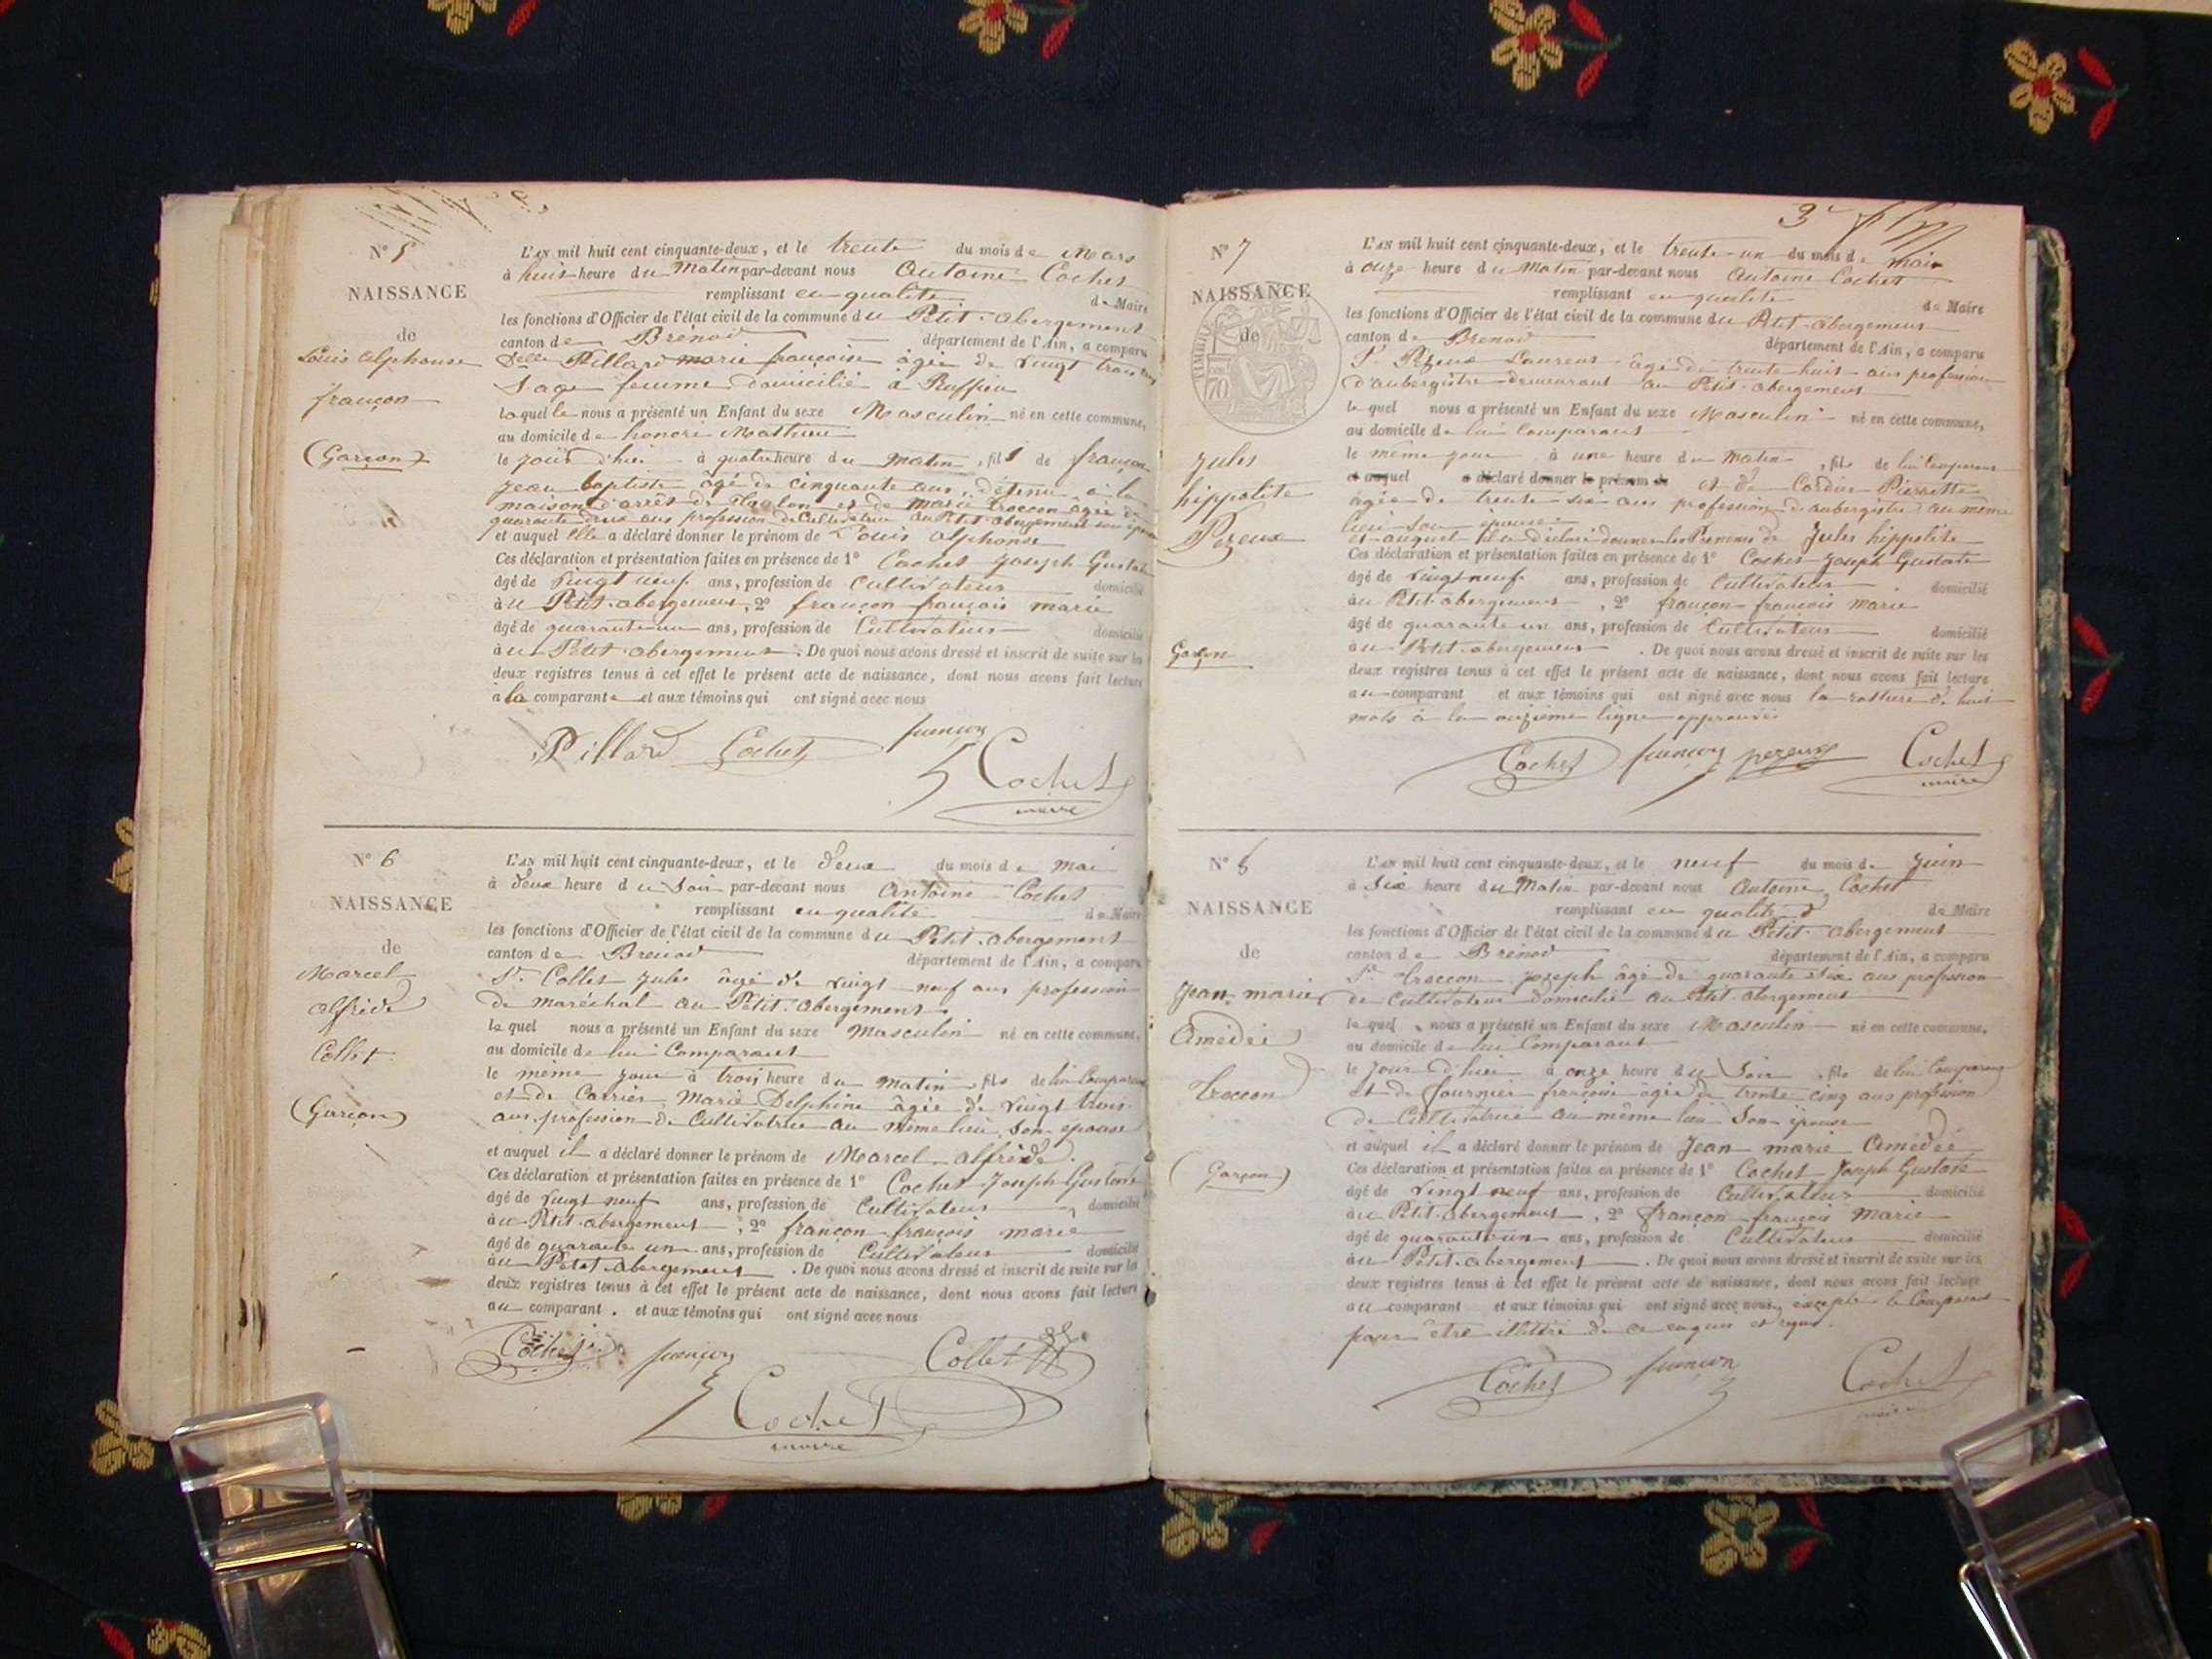 N° 5
NAISSANCE
de
Louis Alphonse
françon
(Garçon)
L'AN mil huit cent cinquante-deux, et le trente du mois de Mars
à huit heure du Matin par-devant nous Antoine Cochet
remplissant en qualité de Maire
les fonctions d'Officier de l'état civil de la commune du Petit-abergement
canton de Brénod département de l'Ain, a comparu
Delle Pillard marie françoise âgée de vingt trois ans
Sage femme domicilié à Ruffieu
laquelle nous a présenté un Enfant du sexe Masculin né en cette commune,
au domicile de honoré Mathieu
le jour d'hier à quatre heure du matin, fils de françon
jean baptiste âgé de cinquante ans, détenu à la
maison d'arrêt de et de Marie Troccon âgée de
quarante deux ans profession de Cultivatrice au Petit-abergement son épouse
et auquel Elle a déclaré donner le prénom de Louis Alphonse
Ces déclaration et présentation faites en présence de 1° Cochet Joseph Gustave
âgé de vingt neuf ans, profession de Cultivateur domicilié
au Petit-abergement, 2° françon françois marie
âgé de quarante-un ans, profession de Cultivateur domicilié
au Petit-abergement. De quoi nous avons dressé et inscrit de suite sur les
deux registres tenus à cet effet le présent acte de naissance, dont nous avons fait lecture
à la comparante et aux témoins qui ont signé avec nous
Pillard Cochet françon
Cochet
maire
N° 6
NAISSANCE
de
Marcel
Alfride
Collet
(Garçon)
L'AN mil huit cent cinquante-deux, et le deux du mois de Mai
à deux heure du Soir par-devant nous Antoine Cochet
remplissant en qualité de Maire
les fonctions d'Officier de l'état civil de la commune du Petit-abergement
canton de Brénod département de l'Ain, a comparu
Sr. Collet Jules âgé de vingt neuf ans profession
de maréchal au Petit-abergement
lequel nous a présenté un Enfant du sexe Masculin né en cette commune,
au domicile de lui Comparant
le même jour à trois heure du matin, fils de lui Comparant
et de Carrier Marie Delphine âgée de vingt trois
ans profession de Cultivatrice au même lieu son épouse
et auquel il a déclaré donner le prénom de Marcel Alfride.
Ces déclaration et présentation faites en présence de 1° Cochet Joseph Gustave
âgé de vingt neuf ans, profession de Cultivateur domicilié
au Petit-abergement, 2° françon françois marie
âgé de quarante un ans, profession de Cultivateur domicilié
au Petit-abergement. De quoi nous avons dressé et inscrit de suite sur les
deux registres tenus à cet effet le présent acte de naissance, dont nous avons fait lecture
au comparant. et aux témoins qui ont signé avec nous
Cochet françon Collet
Cochet
maire
3e
N° 7
NAISSANCE
de
TIMBRE
70
Jules
hippolite
Pezeux
Garçon
L'AN mil huit cent cinquante-deux, et le trente-un du mois de mai
à onze heure du Matin par-devant nous Antoine Cochet
remplissant en qualité de Maire
les fonctions d'Officier de l'état civil de la commune du Petit-abergement
canton de Brénod département de l'Ain, a comparu
Sr Pezeux Laurent âgé de trente huit ans profession
d'aubergiste demeurant au Petit-abergement
lequel nous a présenté un Enfant du sexe Masculin né en cette commune,
au domicile de lui Comparant
le même jour à une heure du Matin, fils de lui Comparant
et auquel a déclaré donner le prénom de et de Cordier Pierrette
âgée de trente six ans profession de aubergiste au même
lieu son épouse
et auquel il a déclaré donner les Prénoms de Jules hippolite
Ces déclaration et présentation faites en présence de 1° Cochet Joseph Gustave
âgé de vingt neuf ans, profession de Cultivateur domicilié
au Petit-abergement, 2° françon françois Marie
âgé de quarante un ans, profession de Cultivateur domicilié
au Petit-abergement. De quoi nous avons dressé et inscrit de suite sur les
deux registres tenus à cet effet le présent acte de naissance, dont nous avons fait lecture
au comparant et aux témoins qui ont signé avec nous la rature de huit
mots à la onzième ligne approuvés
Cochet françon pezeux Cochet
maire
N° 8
NAISSANCE
de
Jean marie
Amédée
Troccon
(Garçon)
L'AN mil huit cent cinquante-deux, et le neuf du mois de Juin
à six heure du Matin par-devant nous Antoine Cochet
remplissant en qualité de Maire
les fonctions d'Officier de l'état civil de la commune du Petit-abergement
canton de Brénod département de l'Ain, a comparu
Sr. Troccon Joseph âgé de quarante six ans profession
de Cultivateur domicilié au Petit-abergement
lequel nous a présenté un Enfant du sexe Masculin né en cette commune,
au domicile de lui Comparant
le jour d'hier à onze heure du Soir, fils de lui Comparant
et de fournier françoise âgée de trente cinq ans profession
de Cultivatrice au même lieu Son épouse
et auquel il a déclaré donner le prénom de Jean marie Amédée
Ces déclaration et présentation faites en présence de 1° Cochet Joseph Gustave
âgé de vingt neuf ans, profession de Cultivateur domicilié
au Petit-abergement, 2° françon françois Marie
âgé de quarante un ans, profession de Cultivateur domicilié
au Petit-abergement. De quoi nous avons dressé et inscrit de suite sur les
deux registres tenus à cet effet le présent acte de naissance, dont nous avons fait lecture
au comparant et aux témoins qui ont signé avec nous, excepté le Comparant
pour être illettré de ce enquis et requis.
Cochet françon Cochet
maire